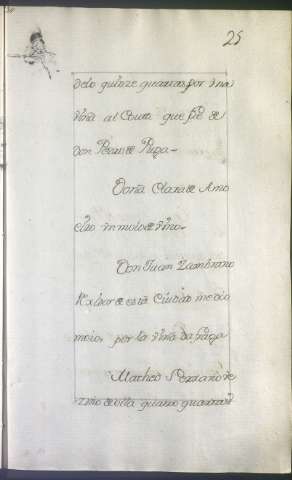 25
delo quinze quarras por vna
viña al Couto que fue de
don Pedro de Puga-
Doña Clara de Amo
eiro vn moio de vino-
Don Juan Zambrano
de esta Ciudad medio
moio, por la viña da fraga
Matheo Serrano ve
zino de villa quatro quarras